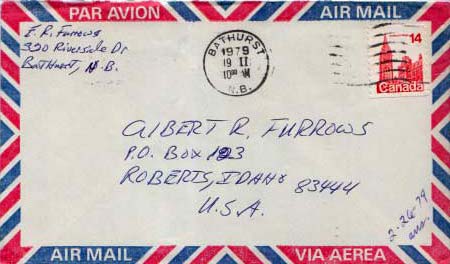 PAR AVION
AIR MAIL
E. R. Furrows
320 Riverside Dr
Bathurst, N.B.
BATHURST
1979
19 II
N.B.
14
Canada
ALBERT R. FURROWS
P.O. BOX 123
ROBERTS, IDAHO 83444
U.S.A.
2-26-79
ans.
AIR MAIL
VIA AEREA